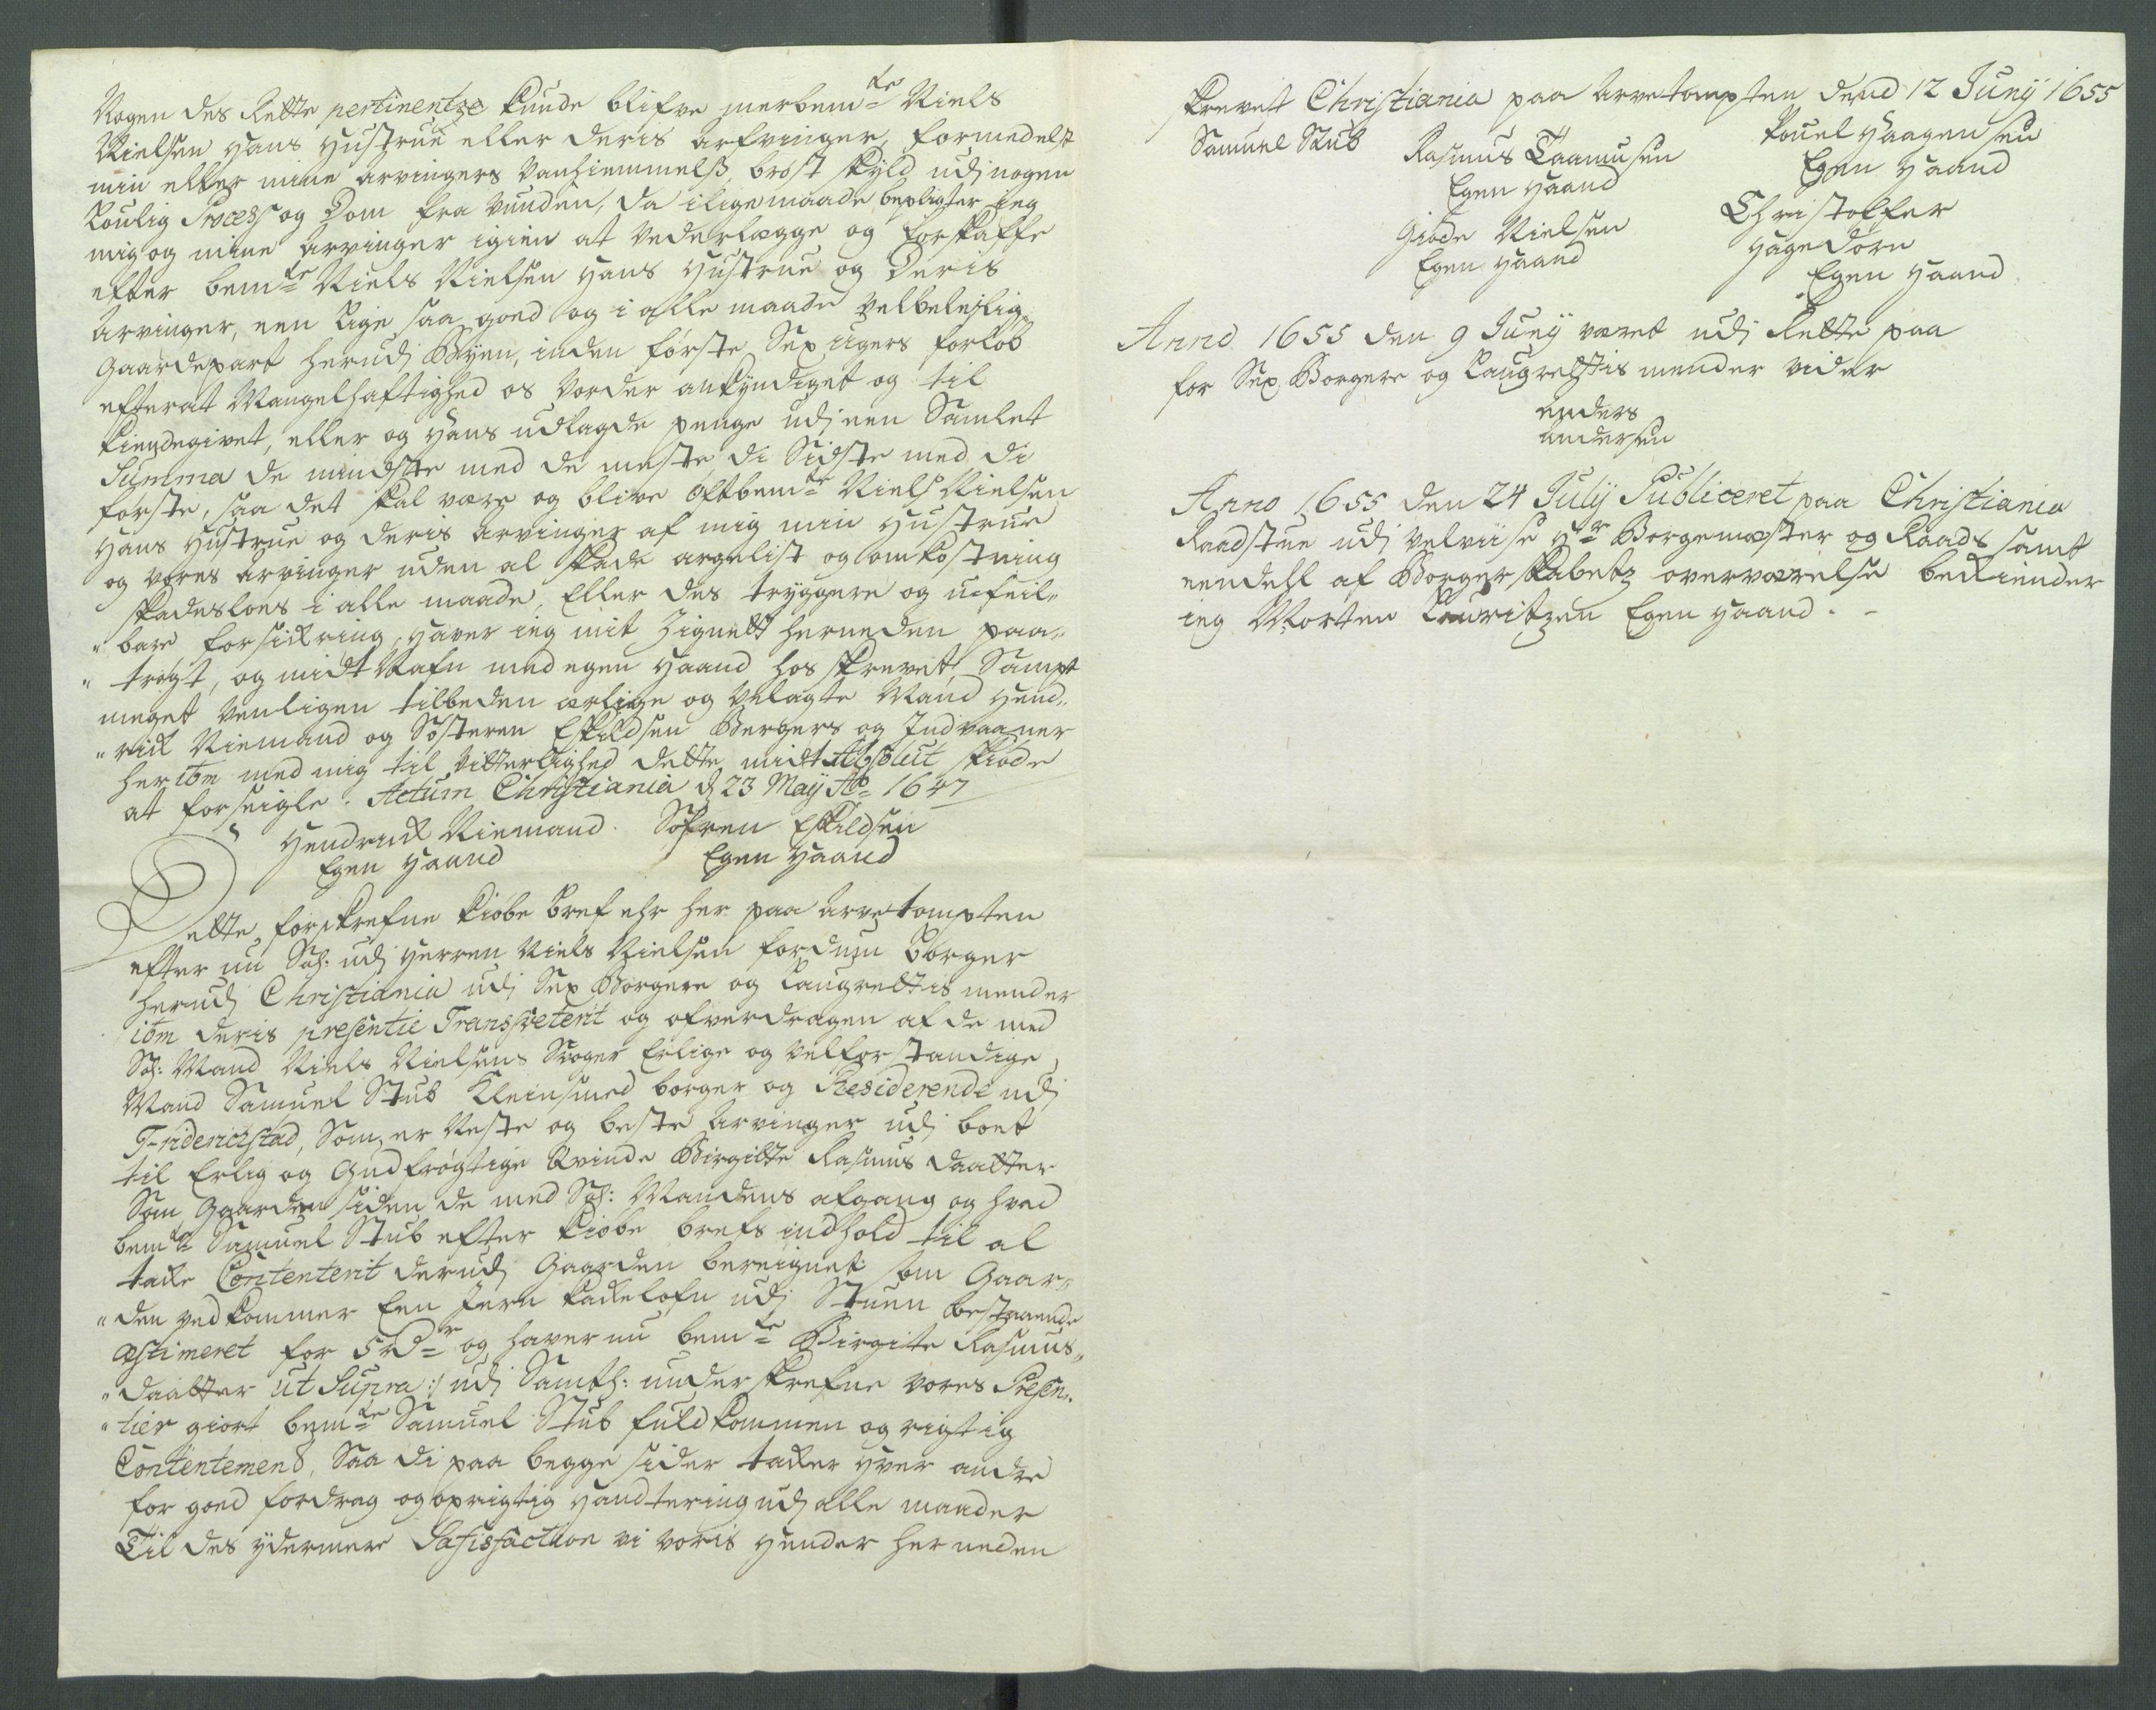 Nogen des Rette pertinentze kunde blifve merbemte Niels
Nielsen Hans Hustrue eller deris arfvinger, formedelst
min eller mine arvingers Vanhiemmelß, bröst skyld udj nogen
Loulig Process og Dom fra vunden, da iligemaade bepligter ieg
mig og mine arvinger igien at vederlægge og forskaffe
efter bemte Niels Nielsen Hans Hustrue og Deris
Arvinger, een lige saa goed og i alle maade velbelejlig
Gaardepart herudj Byen, inden förste Sex Ugers forlöb
efterat Mangelhaftighed os vorder ankyndiget og til
kiendegivet, eller og Hans udlagde penge udj een Samlet
Summa de mindste med de meste, di Sidste med di
förste, saa det skal være og blive oftbemte Niels Nielsen
Hans Hustrue og deris arvinger af mig min Hustrue
og vores arvinger uden al skade argelist og omkostning
skadeslöes i alle maade, Eller des tryggere og u-feil„
„bare forsickring, haver ieg mit Zignett herneden paa„
„trögt, og midt Nafn med egen Haand hos skrevet, Sampt
meget venligen tilbeden ærlige og velagte Mand Hend„
„rick Niemand og Söfferen Eskildsen Borgere og Indvaaner
her ibm med mig til Vitterlighed dette mit Absolut skiöde
at forseigle. Actum Christiania d 23 Maÿ Ao 1647
Hendrick Niemand. Söfren Eskildsen
Egen Haand Egen Haand
Dette forskrefne kiöbe bref ehr her paa arvetompten
efter nu Sal: udj Herren Niels Nielsen fordum borger
herudj Christiania udj Sex Borgere og Laugrettis mender
ibm deris presentie Transporterit og ofverdragen af de med
Sal: Mand Niels Nielsens Svoger Erlige og velforstandige
Mand Samuel Stub Kleinsmed borger og Residerende udj
Friderichstad, Som er Neste og beste Arvinger udj boet
til Erlig og Gudfrögtige Qvinde Birgitte Rasmus daatter
Som Gaarden siden de med Sal: Mandens afgang og hvad
bemte Samuel Stub efter kiöbe brefs indhold til al
tacke Contenterit derudj Gaarden bereignet som Gaar„
„den vedkommer Een Jern kackelofn udj Stuen bestaaende
æstimeret for 5 Rdr og haver nu bemte Birgite Rasmus„
„daatter ut Supra :/ udj Samtl: underskrefne vores Presen„
„tier giort bemte Samuel Stub fuldkommen og rigtig
Contentement, Saa di paa begge sider tacker hver andre
for goed fordrag og oprigtig Handtering udj alle maader
Til des ydermere Satisfaction vi voris Hender her neden
skrevet Christiania paa Arvetompten dend 12 Junÿ 1655
Samuel Stub Rasmus Taamesen Pouel Haagensen
Egen Haand Egen Haand
Giöde Nielsen Christoffer
Egen Haand Hagedorn
Egen Haand
Anno 1655 den 9 Junÿ været udj Rette paa
for Sex Borgere og Laugrettis mender vider
Anders
Andersen
Anno 1655 den 24 Julÿ Publiceret paa Christiania
Raadstue udj velviise Hr Borgemester og Raads samt
eendehl af Borgerskabetz overværelse bekiender
ieg Morten Lauritzen Egen Haand. –